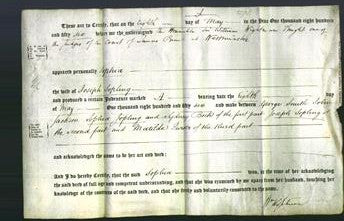 These are to Certify, that on the eighth day of May in the Year One thousand eight hundred
and fifty six before me the undersigned Sir William Wightman Knight one of
the Judges of the Court of Queen's Bench at Westminster
appeared personally Sophia
the wife of Joseph Jopling
and produced a certain Indenture marked A bearing date the eighth day
of May One thousand eight hundred and fifty six and made between George Smith John
Jackson Sophia Jopling and of the first part Joseph Jopling of
the second part and Matilda of the third part
and acknowledged the same to be her act and deed:
And I do hereby Certify, that the said Sophia was, at the time of her acknowledging
the said deed of full age and competent understanding, and that she was examined by me apart from her husband, touching her
knowledge of the contents of the said deed, and that she freely and voluntarily consented to the same.